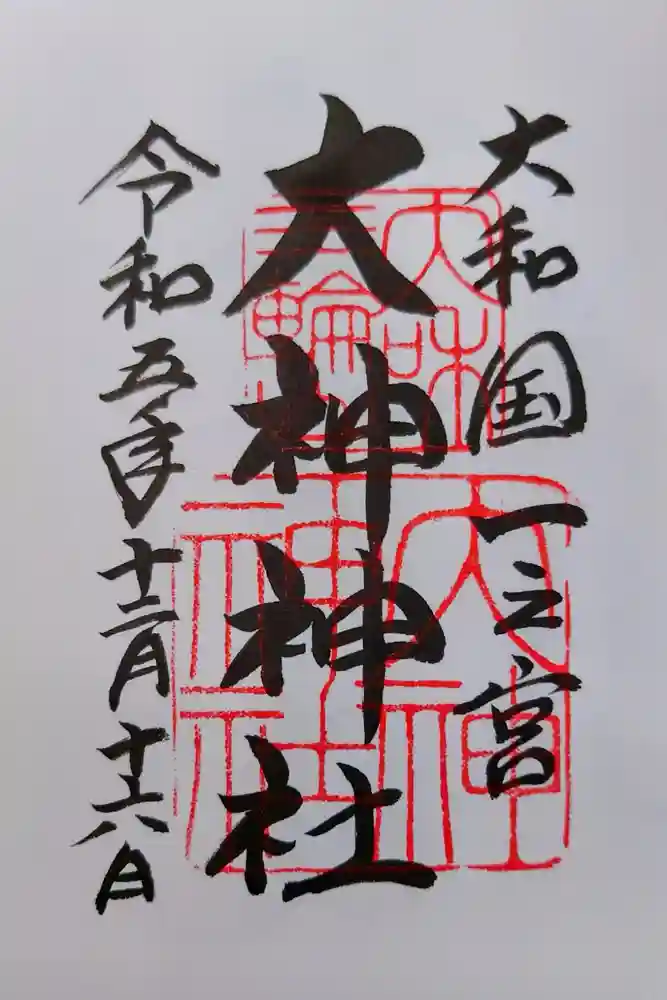 大和国一之宮
大神神社
令和五年十二月十六日
大神神社